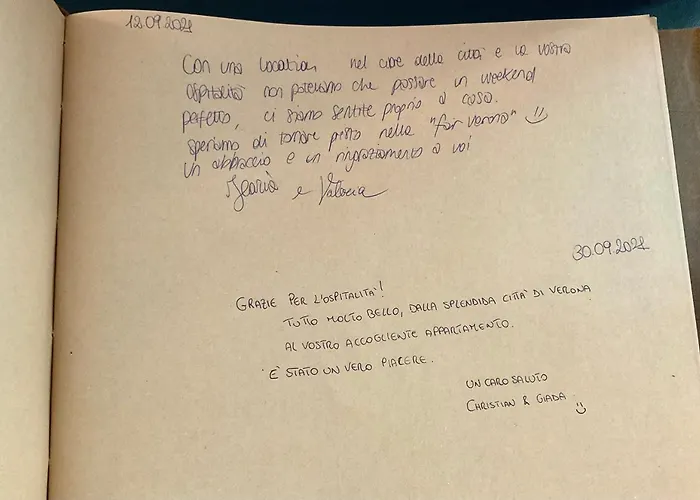 12.09.2021
Con una location nel cuore della città e la vostra
ospitalità non potevamo che passare un weekend
perfetto, ci siamo sentite proprio a casa.
speriamo di tornare presto nella "fair Verona" :)
Un abbraccio e un ringraziamento a voi
Ilaria e Valeria
30.09.2021
GRAZIE PER L'OSPITALITA'!
TUTTO MOLTO BELLO, DALLA SPLENDIDA CITTA' DI VERONA
AL VOSTRO ACCOGLIENTE APPARTAMENTO.
E' STATO UN VERO PIACERE.
UN CARO SALUTO
CHRISTIAN & GIADA :)